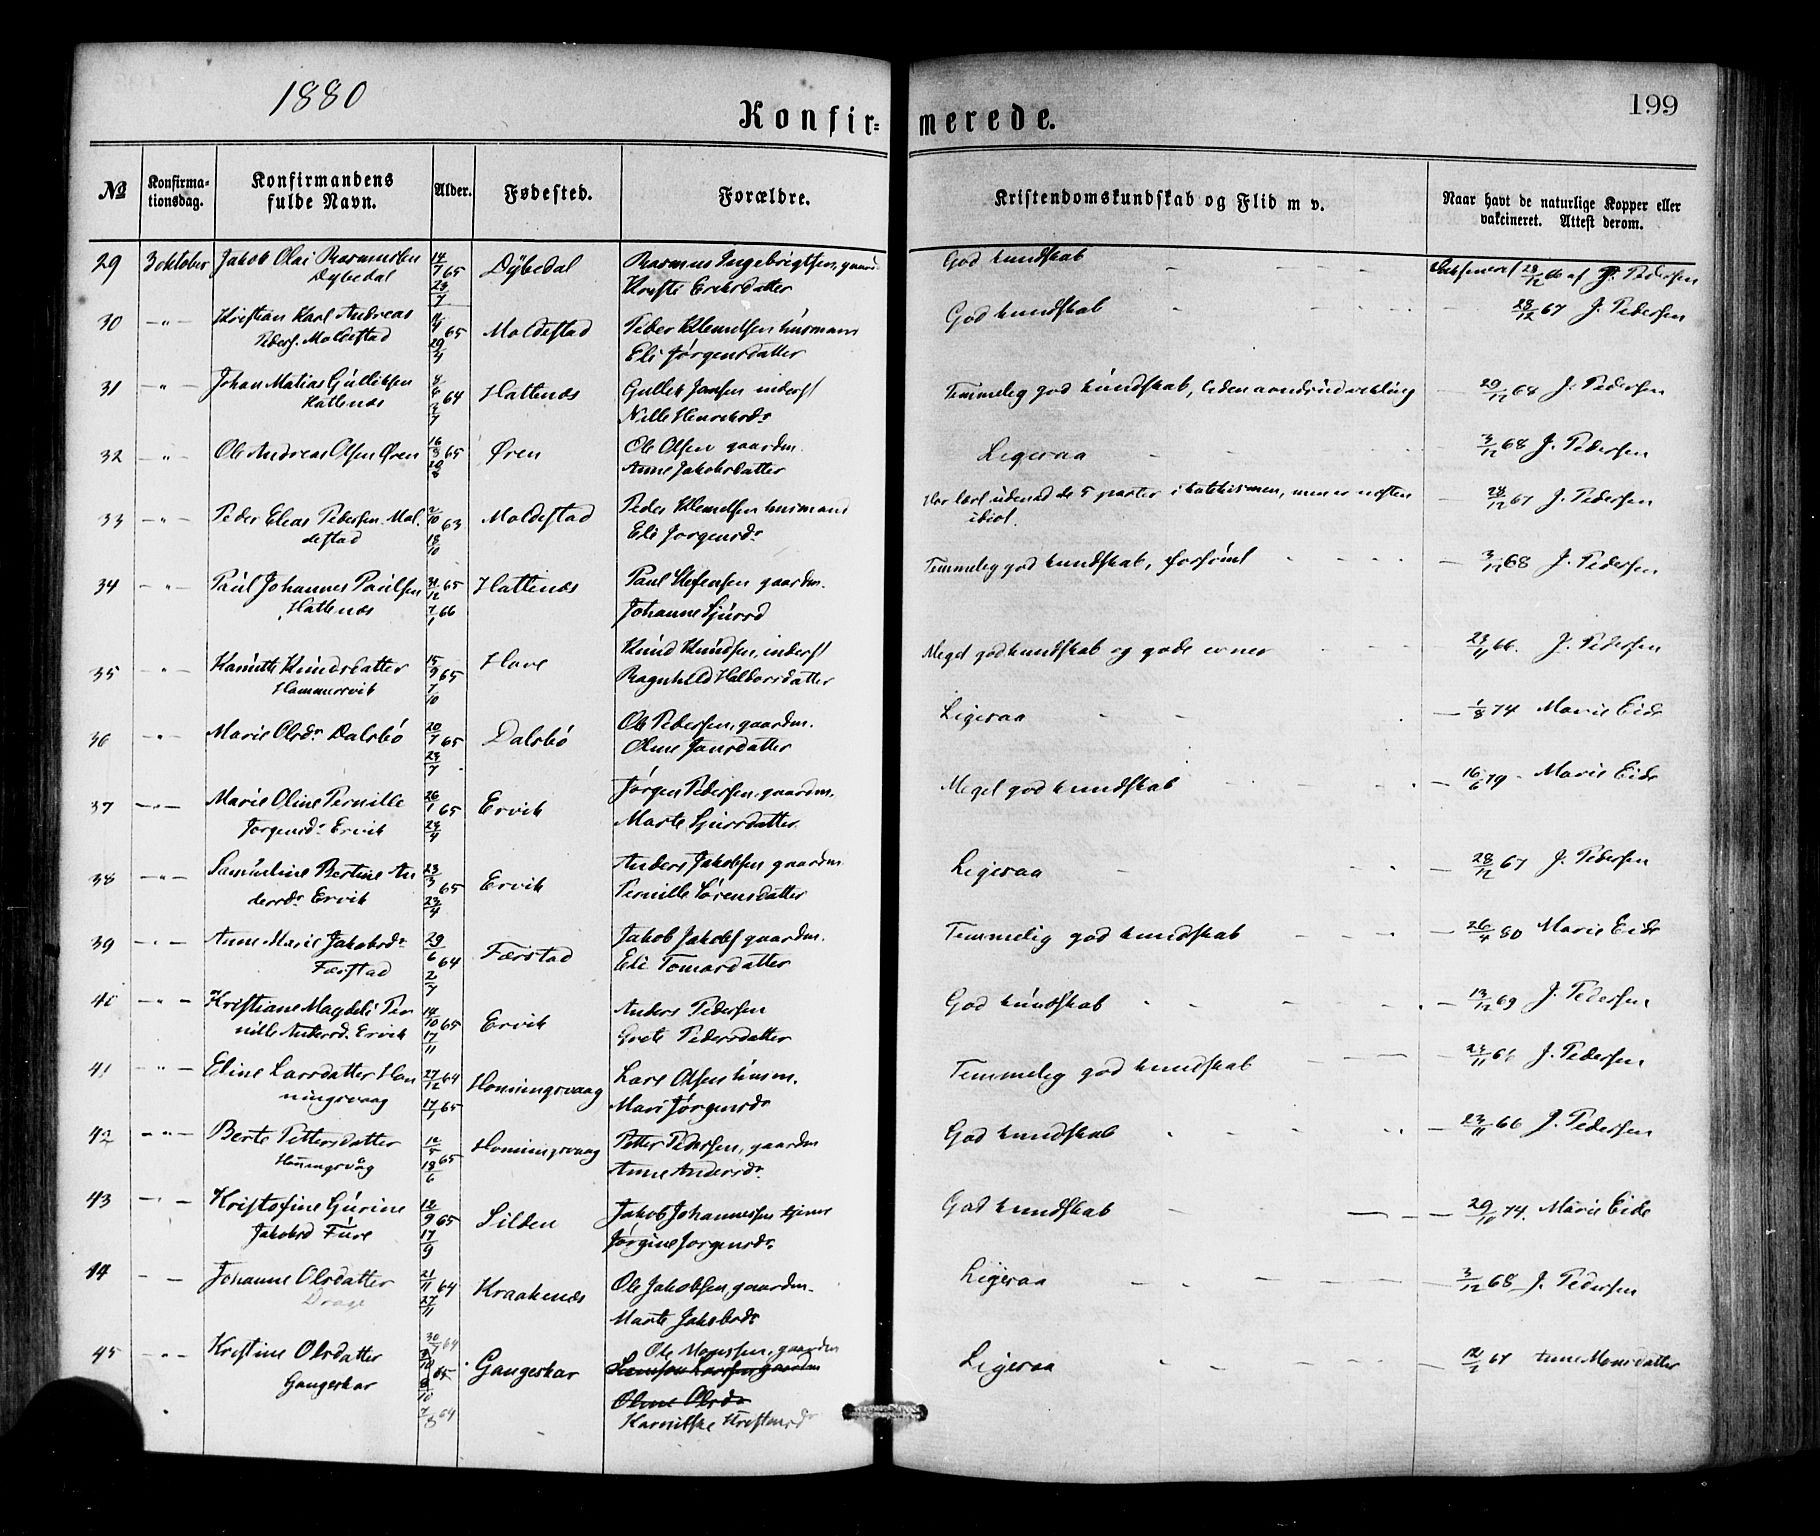 1880
199
Konfir=
merede.
№ Konfirma-
tionsdag. Konfirmandens
fulde Navn. Alder. Fødested. Forældre. Kristendomskundskab og Flid m v. Naar havt de naturlige Kopper eller
vakcineret. Attest derom.
29 3 oktober Jakob Olai Rasmussen 14/7 65 Dybedal Rasmus Ingebrigtsen, gaard God kundskab 28/12 66 af J. Pedersen
Dybedal 23/7 Kristi Eriksdatter
30 -"- Kristian Karl Andreas 11/4 65 Moldestad Peder Klemetsen husmann God kundskab 28/12 67 J. Pedersen
Peders. Moldestad 29/4 Eli Jørgensdatter
31 -"- Johan Matias Gulliksen 64 Hattenæs Gullik Jansen inderst Temmelig god kundskab, liden aandsudvikling 29/12 64 J. Pedersen
Hattenæs Nille Henriksdr
32 " Ole Andreas Olsen Øren 16/3 65 Øren Ole Olsen gaardm. Ligesaa 3/12 68 J. Pedersen
Anne Jakobsdatter
33 -"- Peder Elias Pedersen Mol- 2/10 63 Moldestad Peder Klemetsen husmand Har lært udenad de 5 parter i katekismen, men er næsten 28/12 67 J. Pedersen
destad 18/10 Eli Jorgensdr idiot.
34 -"- Paul Johannes Paulsen 31/12 65 Hattenæs Paul Stefensen gaardm. Temmelig god kundskab, forsømt 3/12 68 J. Pedersen
Hattenæs 7/1 66 Johanne Sjursd
35 -"- Knudsdatter 15/9 65 Have Knud Knudsen, inderst Meget god kundskab og gode evner 23/11 66. J. Pedersen
Hammersvik 7/10 Ragnhild Halvorsdatter
36 -"- Marie Olsdr Dalsbø 20/7 65 Dalsbø Ole Pedersen, gaardm. Ligesaa 1/8 74 Marie Eide
23/7 Oline Jansdatter
37 -"- Marie Oline Pernille 26/1 65 Ervik Jørgen Pedersen, gaardm. Meget god kundskab 16/6 79 Marie Eide
Jorgensdr Ervik 23/4 Marte Sjursdatter
38 -"- Samueline Bertine An 23/3 65 Ervik Anders Jakobsen gaardm Ligesaa 28/12 67 J. Pedersen
dersdr Ervik 23/4 Pernille Sørensdatter
39 -"- Anne Marie Jakobsdr 29/6 64 Færstad Jakob Jakobs gaardm. Temmelig god kundskab 26/4 80 Marie Eide
Færstad 2/7 Eli Tomasdatter
40 -"- Kristiane Magdeli Per 14/10 65 Ervik Anders Pedersen God kundskab 13/12 69 J. Pedersen
nille Andersd. Ervik 17/11 Grete Pedersdatter
41 -"- Eline Larsdatter Hon 27/12 64 Honningsvaag Lars Olsen husm. Temmelig god kundskab 23/11 66 J. Pedersen
ningsvaag 17/1 65 Mari Jørgensdr
42 -"- Berte Pettersdatter 12/5 65 Honningsvaag Petter Pedersen, gaardm God kundskab 23/11 66 J. Pedersen
Honingsvåg 18/6 Anne Andersdr
43 -"- Kristofine Gurine 12/9 65 Silden Jakob Johannessen tjener God kundskab 29/10 74. Marie Eide
Jakobsd Fure 17/9 Jørgine Jorgensdr
44 - - Johanne Olsdatter 21/11 64 Kraakenæs Ole Jakobsen, gaardm. Ligesaa 3/12 68 J. Pedersen
Drage 27/11 Marte Jakobsdr
45 -"- Kristine Olsdatter 30/7 64 Gangeskar Ole Monssen, gaardm Ligesaa 12/2 67 Anne Monsdatter
Gangeskar 65 Larssen gaardm
8/10 Oline Olsdr
7/8 64 Kristensdr